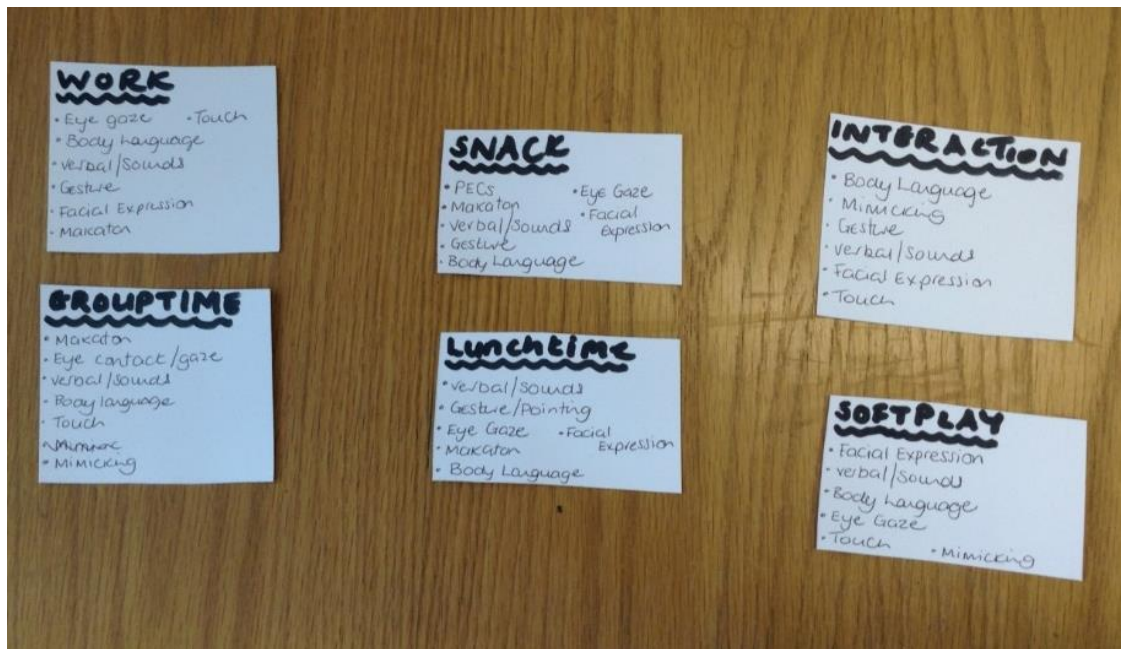 WORK
• Eye gaze • Touch
• Body Language
• verbal/sounds
• Gesture
• Facial Expression
• Makaton
GROUPTIME
• Makaton
• Eye contact/gaze
• verbal/sounds
• Body language
• Touch
• Mimicking
SNACK
• PECs • Eye Gaze
• Makaton • Facial
• verbal/sounds Expression
• Gesture
• Body Language
Lunchtime
• verbal/sounds
• Gesture/Pointing
• Eye Gaze • Facial
• Makaton Expression
• Body Language
INTERACTION
• Body Language
• Mimicking
• Gesture
• verbal/sounds
• Facial Expression
• Touch
SOFTPLAY
• Facial Expression
• verbal/sounds
• Body Language
• Eye Gaze
• Touch • Mimicking